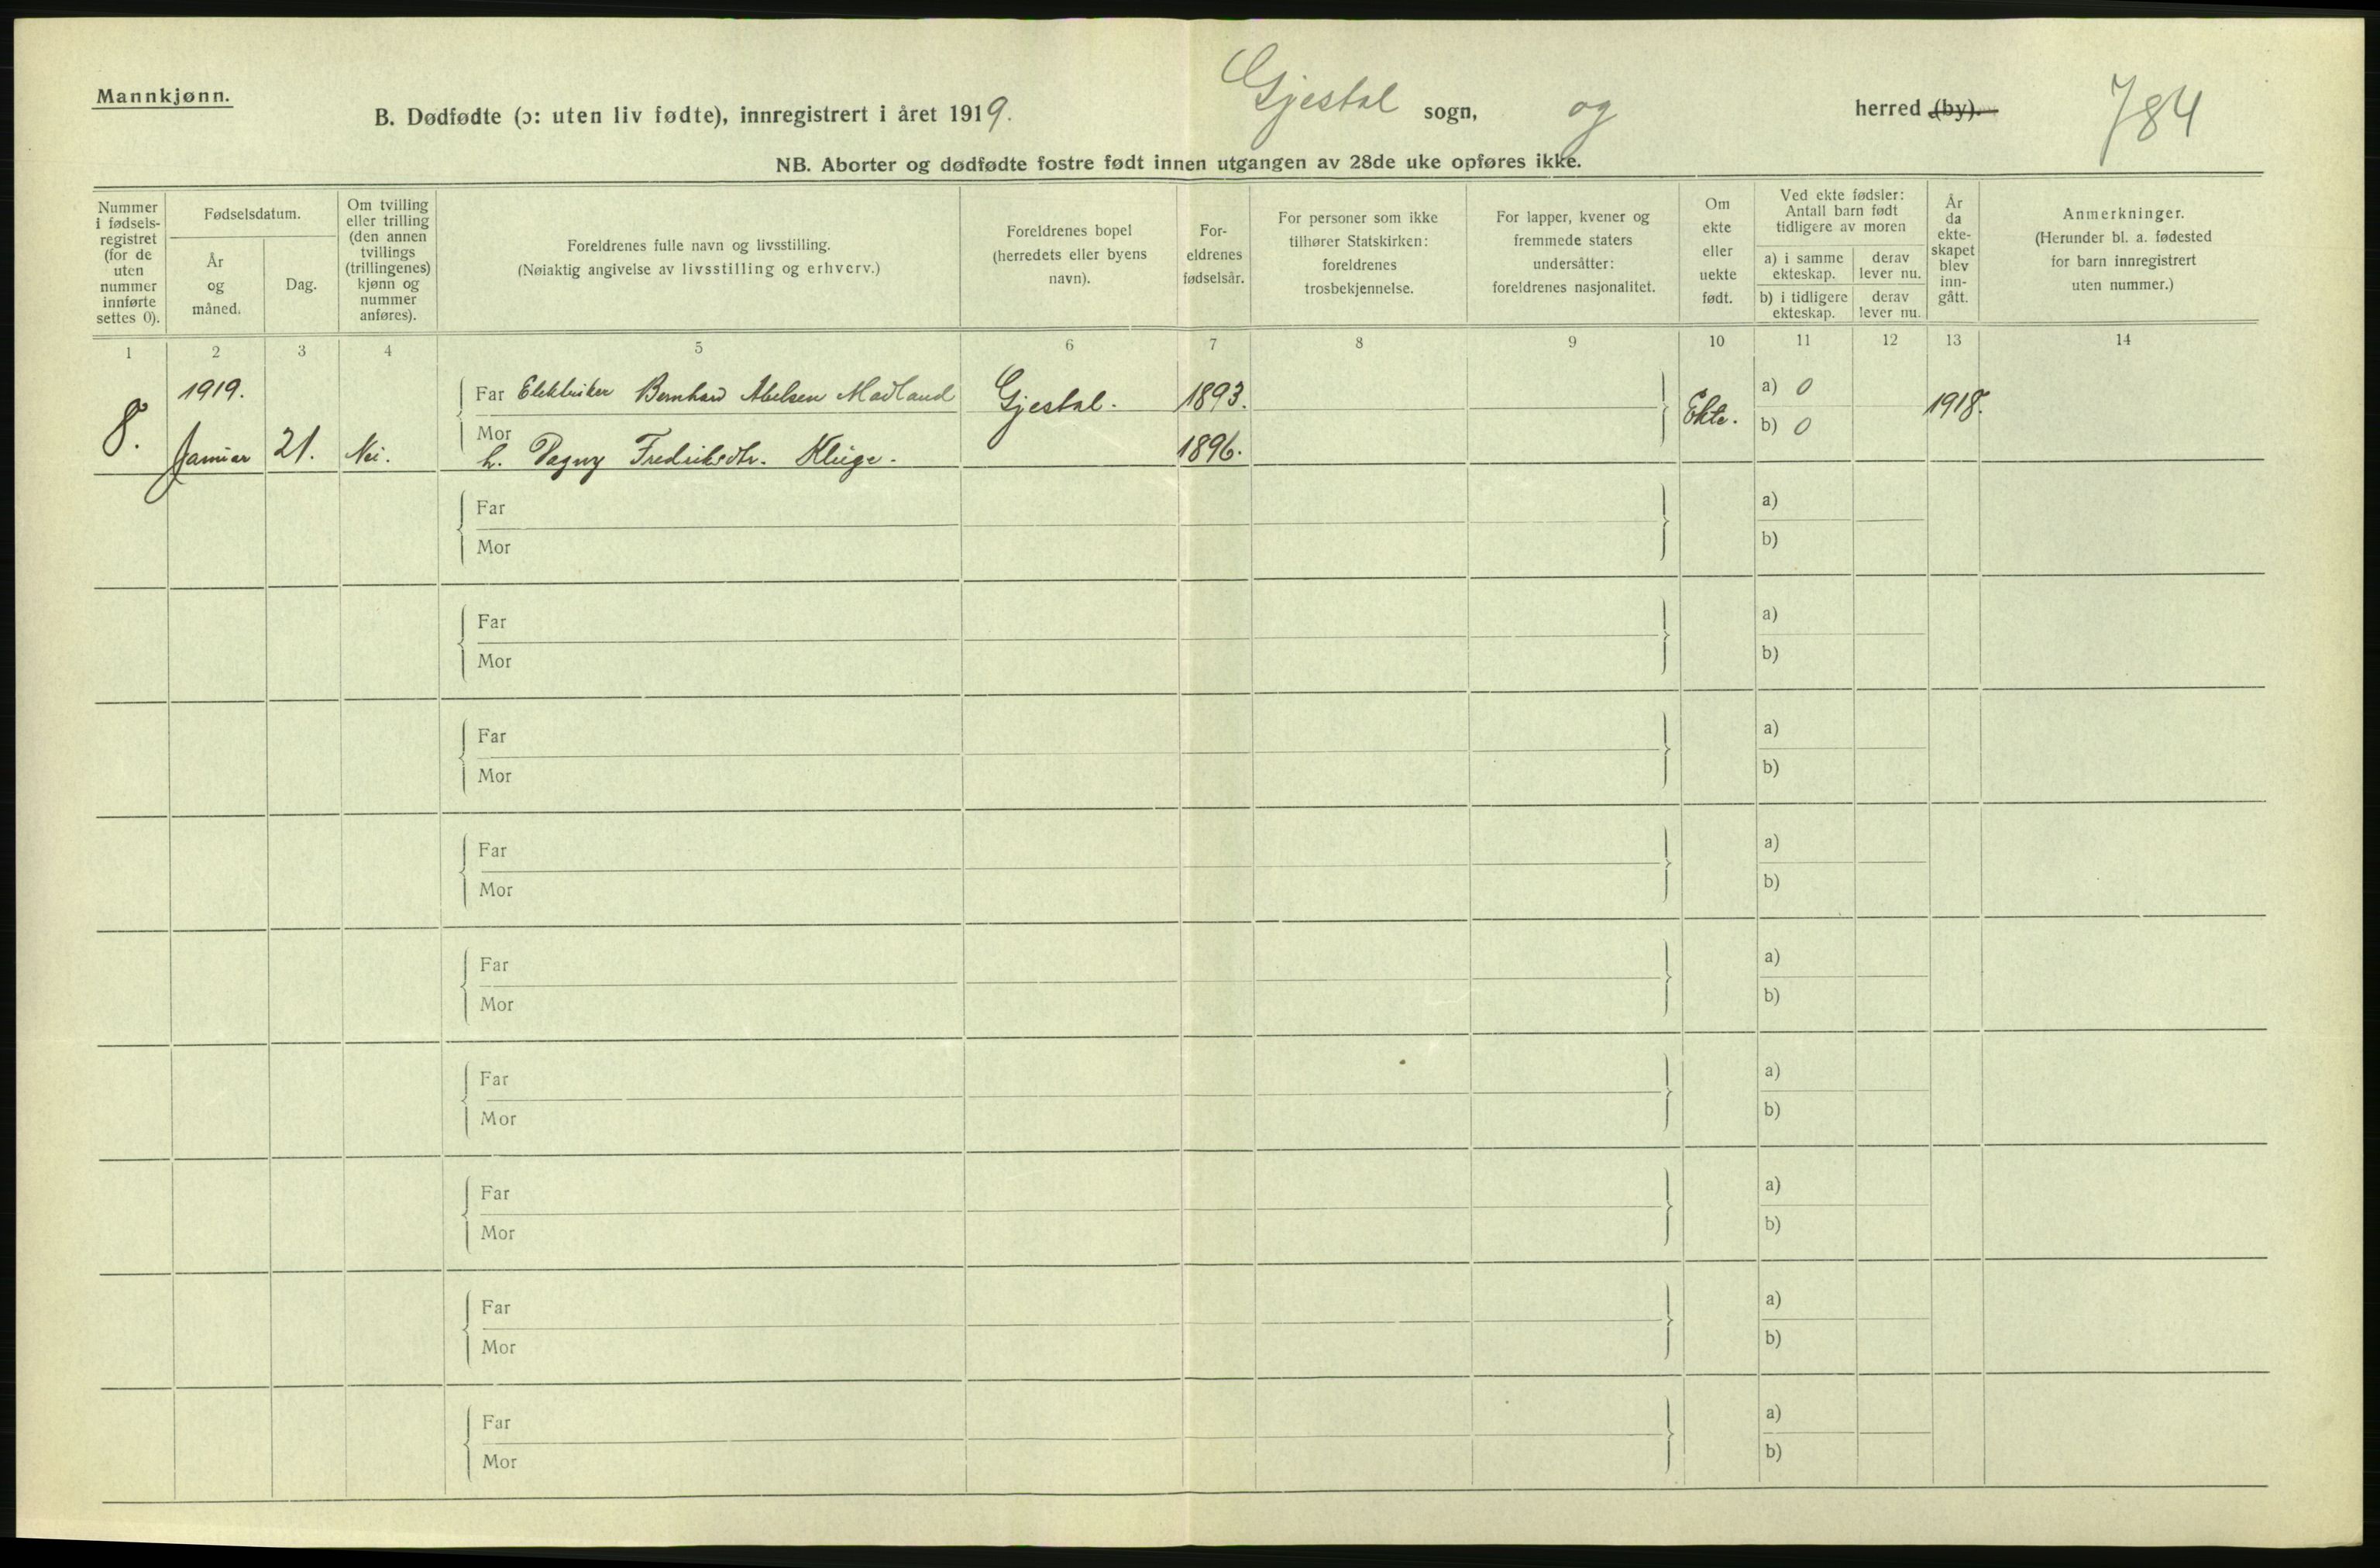 Mannkjønn.
B. Dødfødte (ɔ: uten liv fødte), innregistrert i året 1919. Gjestal sogn, og herred (by). 784
NB. Aborter og dødfødte fostre født innen utgangen av 28de uke opføres ikke.
Nummer i fødsels-registret (for de uten nummer innførte settes 0).
Fødselsdatum.
År og måned.
Dag.
Om tvilling eller trilling (den annen tvillings (trillingenes) kjønn og nummer anføres).
Foreldrenes fulle navn og livsstilling.
(Nøiaktig angivelse av livsstilling og erhverv.)
Foreldrenes bopel (herredets eller byens navn).
For-eldrenes fødselsår.
For personer som ikke tilhører Statskirken: foreldrenes trosbekjennelse.
For lapper, kvener og fremmede staters undersåtter: foreldrenes nasjonalitet.
Om ekte eller uekte født.
Ved ekte fødsler: Antall barn født tidligere av moren
a) i samme ekteskap.
derav lever nu.
b) i tidligere ekteskap.
derav lever nu.
År da ekte-skapet blev inn-gått.
Anmerkninger.
(Herunder bl. a. fødested for barn innregistrert uten nummer.)
1 2 3 4 5 6 7 8 9 10 11 12 13 14
8. 1919. Januar 21. Nei.
Far Elektriker Bernhard Abelsen Madland Gjestal. 1893. Ekte. a) 0 1918.
Mor h. Dagny Fredriksdtr. Kluge. 1896. b) 0
Far a)
Mor b)
Far a)
Mor b)
Far a)
Mor b)
Far a)
Mor b)
Far a)
Mor b)
Far a)
Mor b)
Far a)
Mor b)
Far a)
Mor b)
Far a)
Mor b)